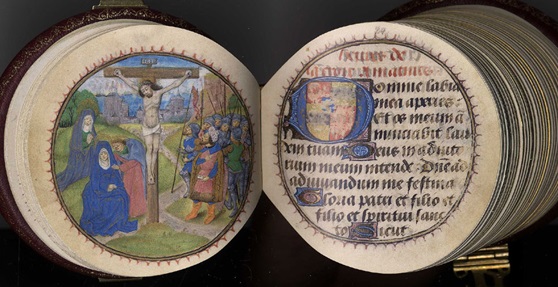 INRI
heures de
matines
Domine labia
mea aperies:
Et os meum a
nunciabit lau
tuam Deus in adiuto
rium meum intende. Dne ad
adiuvandum me festina
Gloria patri et filio et
filio et spiritui sanc
to Sicut